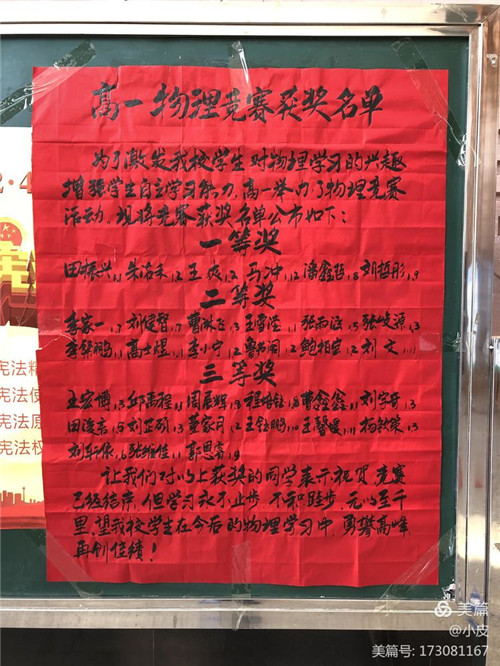 高一物理竞赛获奖名单
为了激发我校学生对物理学习的兴趣
增强学生自主学习能力,高一举办了物理竞赛
活动,现将竞赛获奖名单公布如下:
一等奖
田振兴 朱洛禾 王 马冲 潘鑫 刘哲彤
二等奖
李家一 刘健智 曹淋飞 王雪滢 张雨涵 张峻源
李荣鹏 高士煜 李小宁 鲍相宏 刘文
三等奖
王宏博 邱禹程 周展辉 曹鑫鑫 刘宇奇
田浚 刘芷硕 董家月 王钰鹏 王馨 杨
刘 张维佳 郭恩
让我们对以上获奖的同学表示祝贺,竞赛
已经结束,但学习永不止步,不积跬步,无以至千
里,望我校学生在今后的物理学习中,勇攀高峰
再创佳绩!
宪法精
宪法使
宪法原
宪法权
美篇
@小皮
美篇号: 173081167